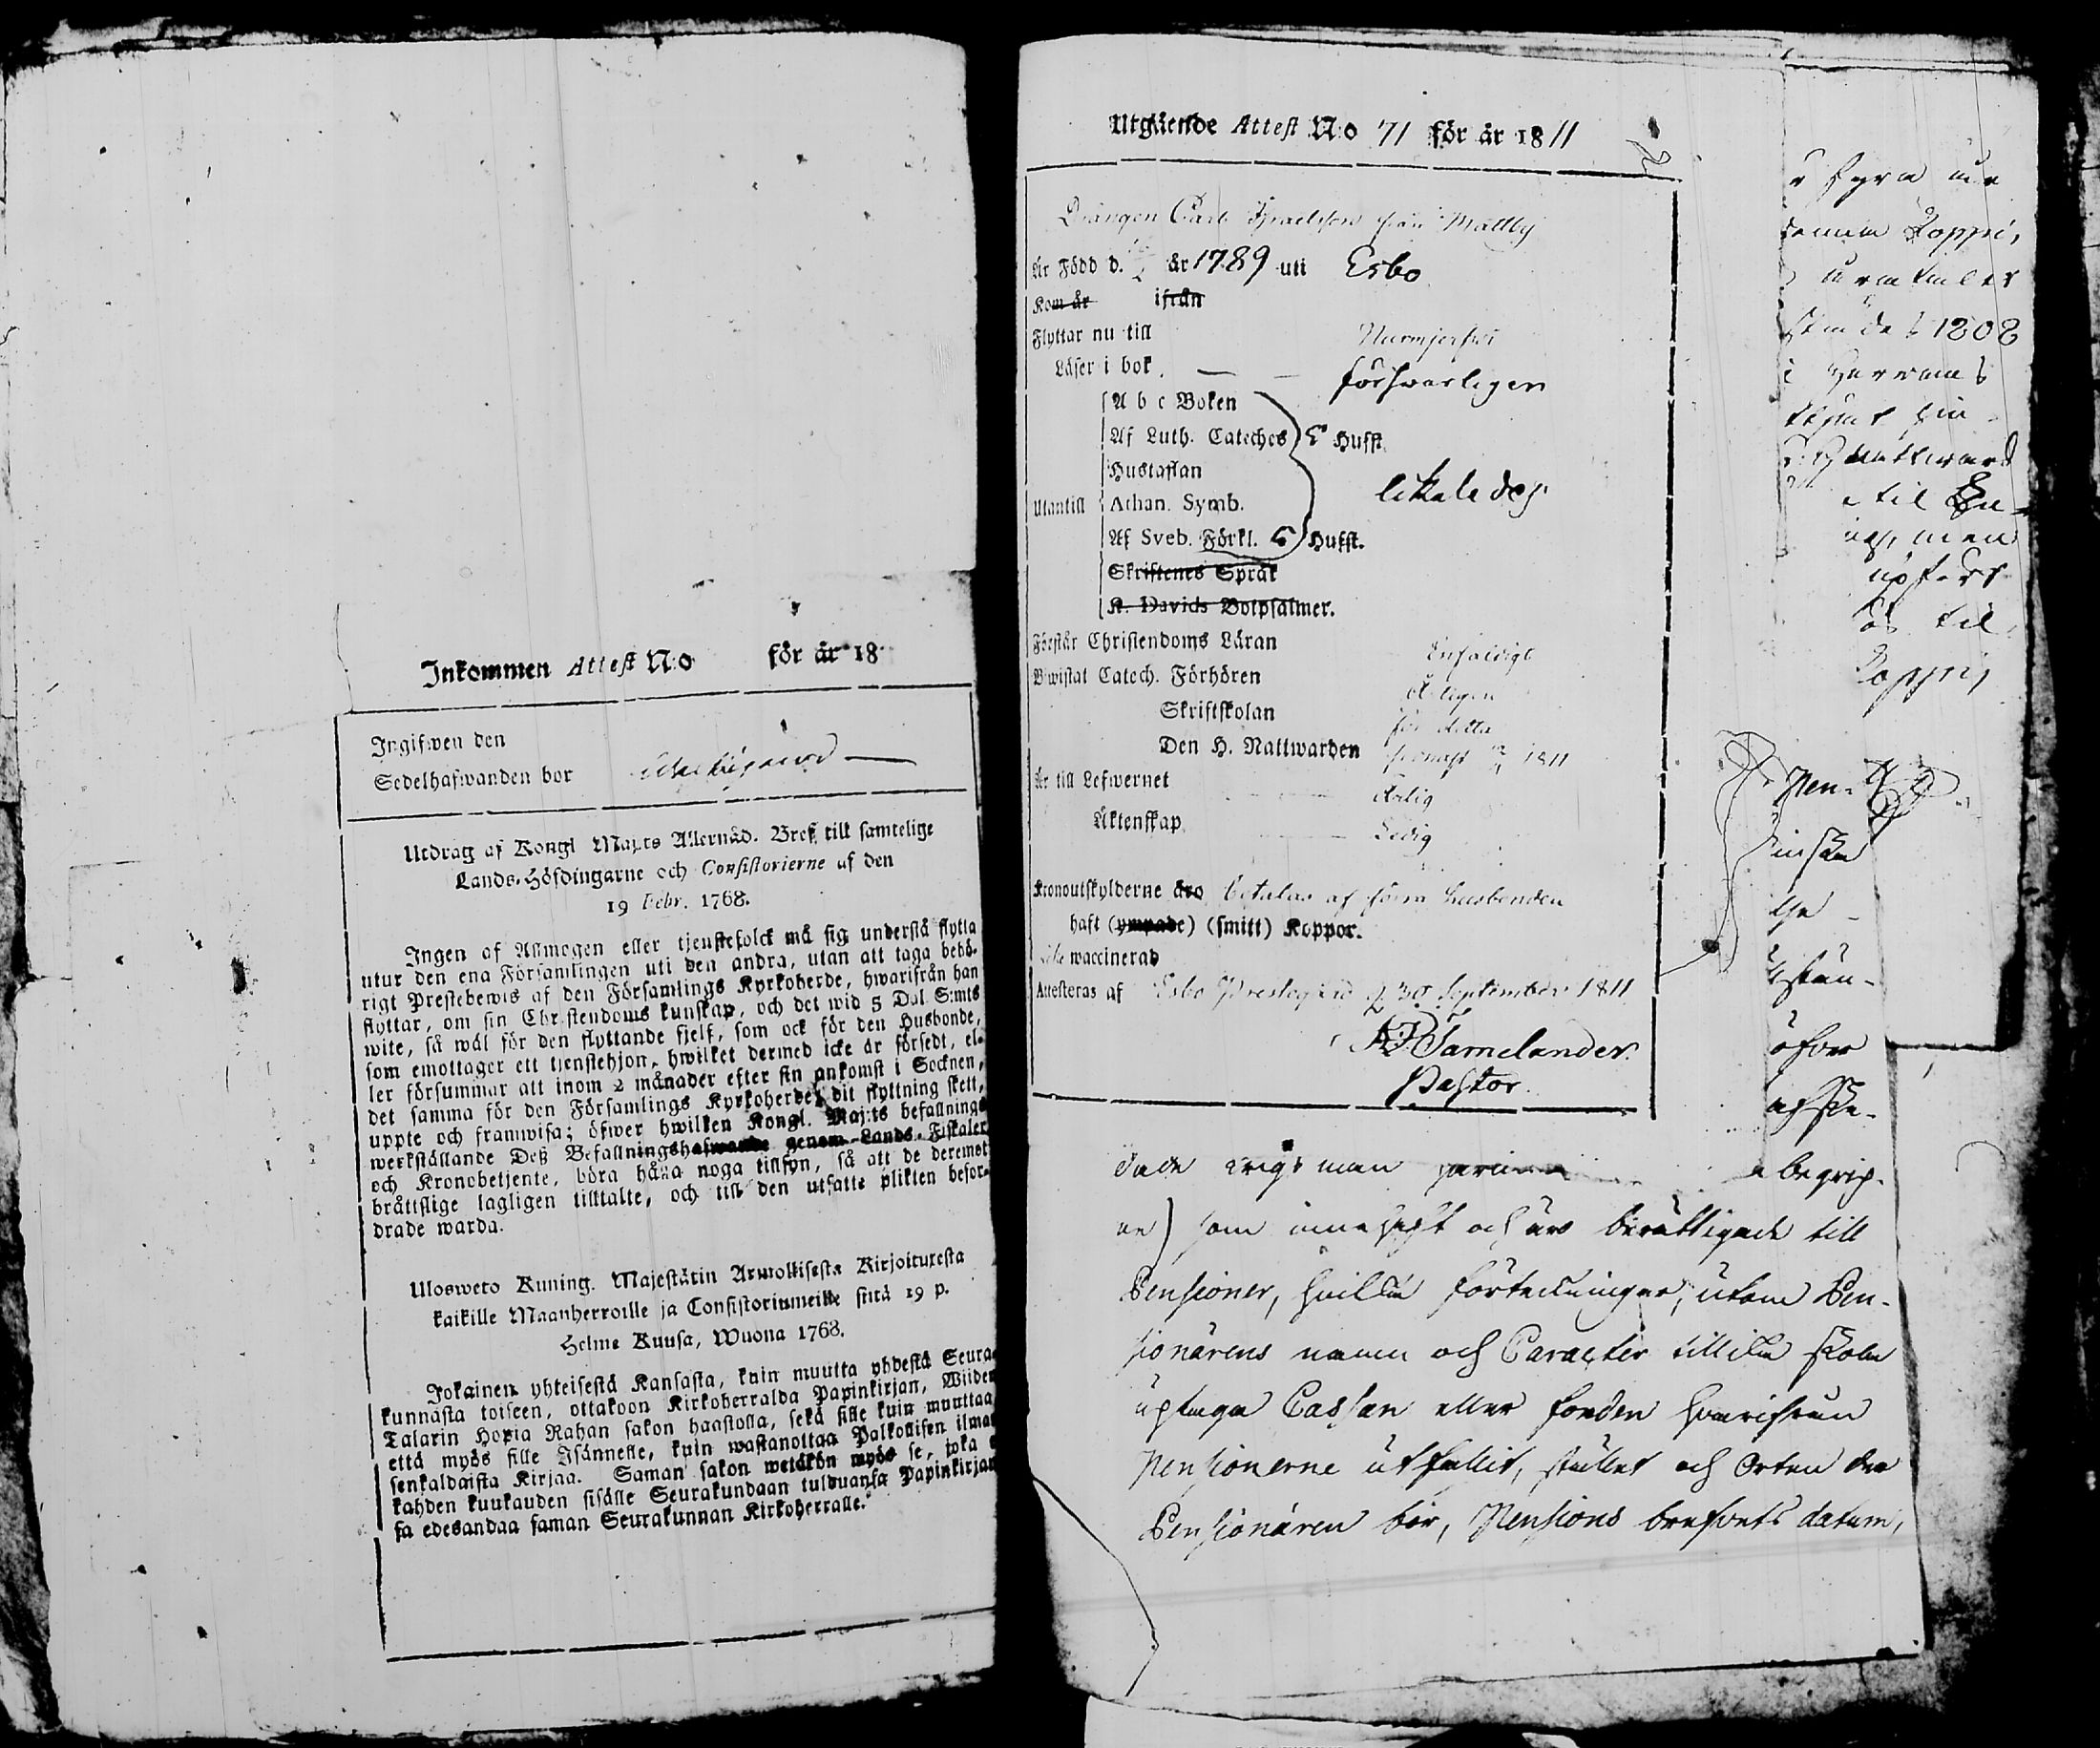 Inkommen Attest N:o för år 18
Ingifwen den
Sedelhafwanden bor
Utdrag af Kongl Maj:ts Allernåd. Bref till samtelige
Lands-Höfdingarne och Consistorierne af den
19 Febr. 1768.
Ingen af Allmogen eller tjenstefolck må sig understå flytta
utur den ena Församlingen uti den andra, utan att taga behö-
rigt Prestebewis af den Församlings Kyrkoherde, hwarifrån han
flyttar, om sin Christendoms kunskap, och det wid 5 Dal. S:mts
wite, så wäl för den flyttande sjelf, som ock för den Husbonde,
som emottager ett tjenstehjon, hwilket dermed icke är försedt, el-
ler försummar att inom 2 månader efter sin ankomst i Socknen,
det samma för den Församlings Kyrkoherde, dit flyttning skett,
uppte och framwisa; öfwer hwilken Kongl. Maj:ts befallnings
werkställande Deß Befallningshafwande genom Lands-Fiskaler
och Kronobetjente, böra hålla noga tillsyn, så att de deremot
bråttslige lagligen tilltalte, och till den utsatte plikten befor-
drade warda.
Ulosweto Kuning. Majestätin Armollisesta Kirjoituxesta
kaikille Maanherroille ja Consistoriumeille siitä 19 p.
Helme Kuusa, Wuona 1768.
Jokainen yhteisestä Kansasta, kuin muutta yhdestä Seura-
kunnasta toiseen, ottakoon Kirkoherralda Papinkirjan, Wiiden
Talarin Hopia Rahan sakon haastolla, sekä sille kuin muuttaa
että myös sille Isännelle, kuin wastanottaa Palkollisen ilman
senkaldaista Kirjaa. Saman sakon wetäkön myös se, joka e
kahden kuukauden sisälle Seurakundaan tulduansa Papinkirjan
sa edesandaa saman Seurakunnan Kirkoherralle.
Utgående Attest N:o 71 för år 1811
Drängen Carl Israelsson från Mattby
Är Född d. år 1789 uti Esbo
Kom år ifrån
Flyttar nu till Nurmijerfvi
Läser i bok försvarligen
A b c Boken
Af Luth. Cateches 5 Hufst.
Hustaflan
Utantill Athan. Symb. likaledes
Af Sveb. Förkl. 5 Hufst.
Skriftenes Språk
K. Davids Botpsalmer.
Förstår Christendoms Läran Enfaldigt
Biwistat Catech. Förhören Årligen
Skriftskolan för detta
Den H. Nattwarden senast 1811
Är till Lefwernet Ärlig
Äktenskap Ledig
Kronoutskylderne äro betalas af förra husbonden
haft (ympade) (smitt) Koppor.
waccinerad
Attesteras af Esbo Prestegård d. 30 September 1811
Samelander.
Pastor.
som innehaft och äro berättigade till
Pensioner, hvilka förteckningar, utom Pen-
sionärens namn och Caracter tillika skola
uptaga Cassan eller fonden hvarifrån
Pensionerne utfallit, stället och Orten der
Pensionären bor, Pensions brefvets datum,
fyra
1808
til
men
til
öfver
begrip-